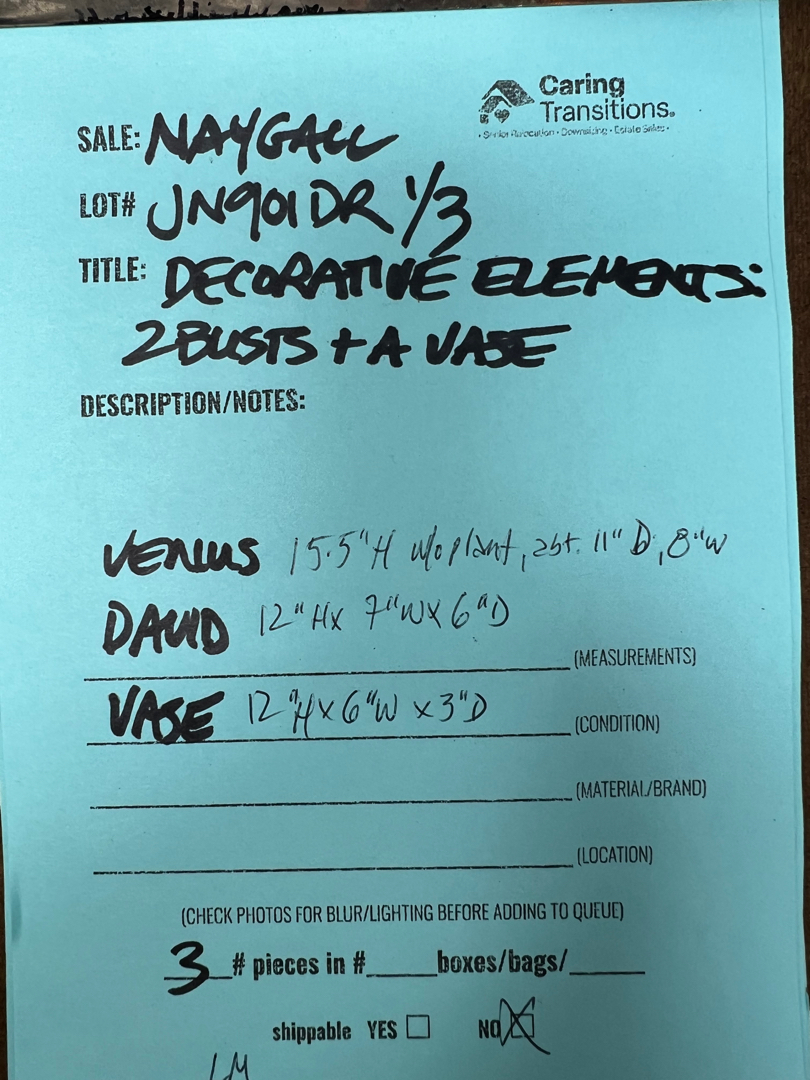 Caring
Transitions®
• Senior Relocation • Downsizing • Estate Sales •
SALE: NAYGALL
LOT# JN901DR 1/3
TITLE: DECORATIVE ELEMENTS:
2 BUSTS + A VASE
DESCRIPTION/NOTES:
VENUS 15.5"H w/o plant, abt. 11" D, 8"W
DAVID 12"Hx 7"Wx 6"D
(MEASUREMENTS)
VASE 12"Hx6"W x3"D
(CONDITION)
(MATERIAL/BRAND)
(LOCATION)
(CHECK PHOTOS FOR BLUR/LIGHTING BEFORE ADDING TO QUEUE)
3 # pieces in #____boxes/bags/____
shippable YES ☐ NO ☒